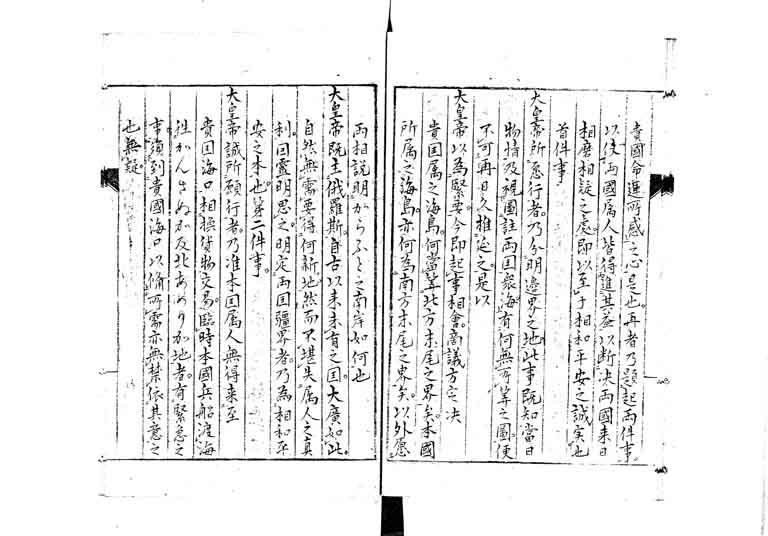 貴國命運所感之心是也再者乃題起両件事
以使両國属人皆得進其益以断决両國来日
相磨相錠之處即以至于相和平安之誠實也
首件事
大皇帝所愿行者乃分明邉界之地此事既知當日
物情及視圖註両国衆海有何無所筭之圖使
不可再日久推延之是以
大皇帝以為緊要今即起事相會啇議方之决
貴国属之海島何當筭北方末尾之界矣本國
所属之海島亦何為南方末尾之界矣以外愿
両相説明からふと之南岸如何也
大皇帝既主俄羅斯自古以来未有之国大廣如此
自然無需要得何新地然而不堪失属人之真
利因靈明思之明定両国疆界者乃為相和平
安之本也第二件事
大皇帝誠所願行者乃准本国属人無得来至
貴国海口相換貨物交易臨時本國兵船渡海
徃かんさぬか及北あめりか地者有緊急之
事須到貴國海口以俻所需亦無禁依其意之
也無疑